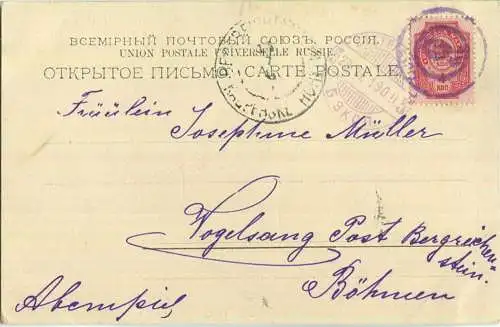 ВСЕМІРНЫЙ ПОЧТОВЫЙ СОЮЗЪ. РОССІЯ.
UNION POSTALE UNIVERSELLE RUSSIE.
ОТКРЫТОЕ ПИСЬМО. CARTE POSTALE
Fräulein
Josephine Müller
Vogelsang Post Bergreichen-
stein.
Böhmen
Австрія